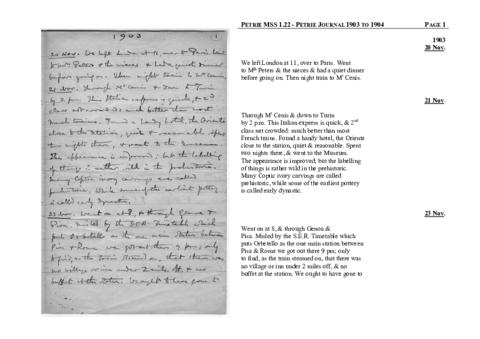 1903 1
20 Nov. We left London at 11, over to Paris. Went
to Mth Peters & the nieces & had a quiet dinner
before going on. Then night train to Mt Cenis.
21 Nov. Through Mt Cenis & down to Turin
by 2 p.m. This Italian express is quick, & 2nd
class not crowded: much better than most
French trains. Found a handy hotel, the Oriente
close to the station, quiet & reasonable. Spent
two nights there, & went to the Museum.
The appearance is improved; but the labelling
of things is rather wild in the prehistoric.
Many Coptic ivory carvings are called
prehistoric, while some of the earliest pottery
is called early dynastic.
23 Nov. Went on at 8, & through Genoa &
Pisa. Misled by the S.E.R. Timetable which
puts Orbetello as the one main station between
Pisa & Rome we got out there 9 pm; only
to find, as the train steamed on, that there was
no village or inn under 2 miles off, & no
buffet at the station. We ought to have gone to
PETRIE MSS 1.22 - PETRIE JOURNAL 1903 TO 1904 PAGE 1
1903
20 Nov.
We left London at 11, over to Paris. Went
to Mth Peters & the nieces & had a quiet dinner
before going on. Then night train to Mt Cenis.
21 Nov.
Through Mt Cenis & down to Turin
by 2 p.m. This Italian express is quick, & 2nd
class not crowded: much better than most
French trains. Found a handy hotel, the Oriente
close to the station, quiet & reasonable. Spent
two nights there, & went to the Museum.
The appearance is improved; but the labelling
of things is rather wild in the prehistoric.
Many Coptic ivory carvings are called
prehistoric, while some of the earliest pottery
is called early dynastic.
23 Nov.
Went on at 8, & through Genoa &
Pisa. Misled by the S.E.R. Timetable which
puts Orbetello as the one main station between
Pisa & Rome we got out there 9 pm; only
to find, as the train steamed on, that there was
no village or inn under 2 miles off, & no
buffet at the station. We ought to have gone to